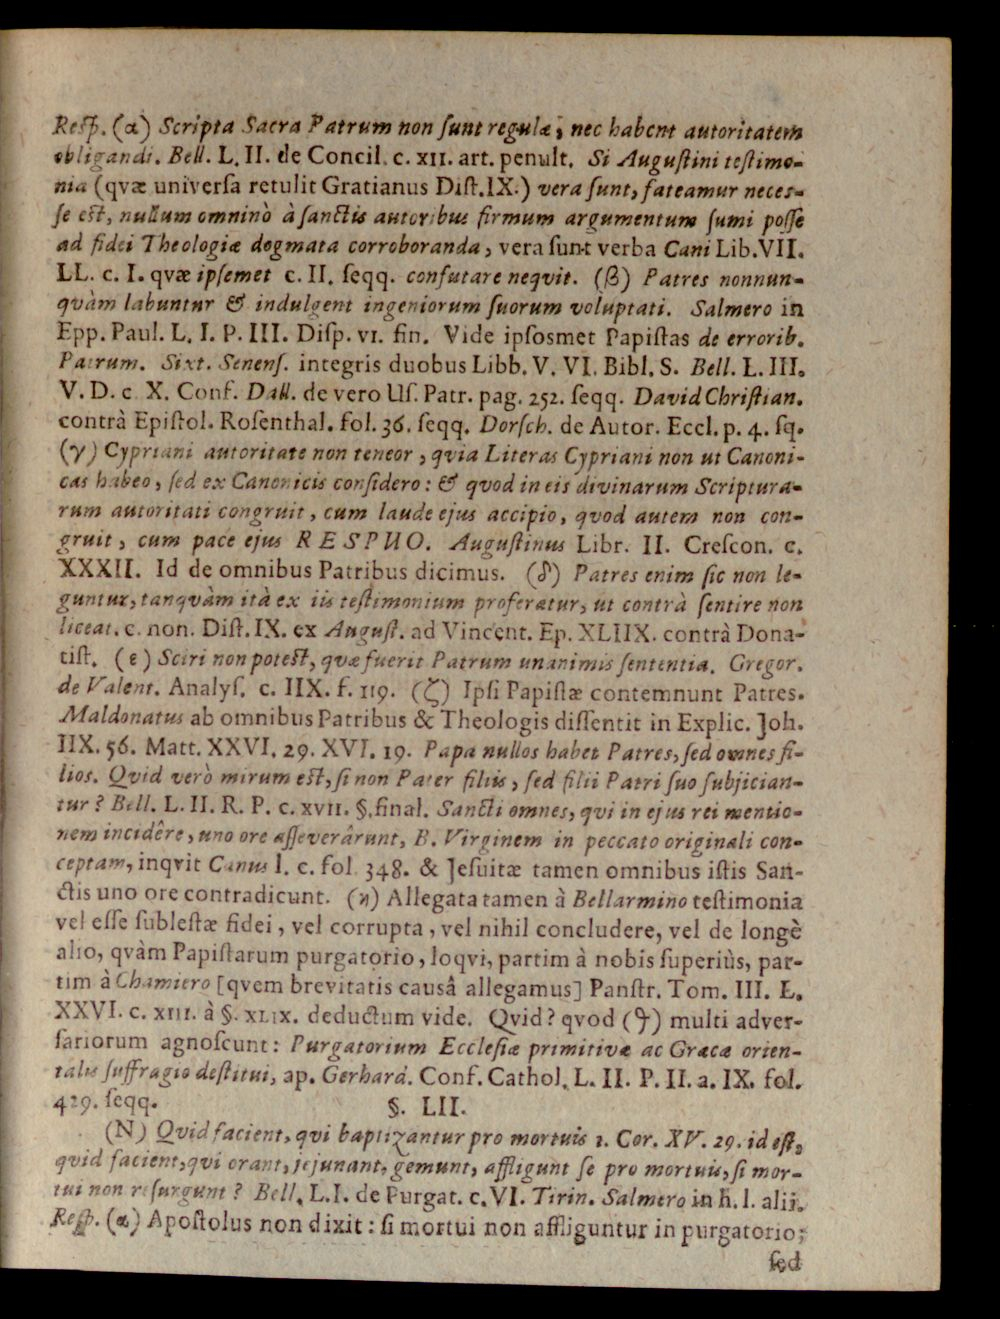 Reſp. (α) Scripta Sacra Patrum non ſunt regulæ; nec habent autoritatem
obligandi. Bell. L. II. de Concil. c. XII. art. penult. Si Auguſtini teſtimo-
nia (qvæ univerſa retulit Gratianus Diſt. IX.) vera ſunt, fateamur neces-
ſe eſt, nullum omninò à ſanctis autoribus firmum argumentum ſumi poſſe
ad fidei Theologiæ dogmata corroboranda, vera ſunt verba Cani Lib. VII.
LL. c. I. qvæ ipſemet c. II. ſeqq. confutare neqvit. (β) Patres nonnun-
quàm labuntur & indulgent ingeniorum ſuorum voluptati. Salmero in
Epp. Paul. L. I. P. III. Diſp. VI. fin. Vide ipſosmet Papiſtas de errorib.
Patrum. Sixt. Senenſ. integris duobus Libb. V. VI. Bibl. S. Bell. L. III.
V. D. c. X. Conf. Dall. de vero Uſ. Patr. pag. 252. ſeqq. David Chriſtian.
contrà Epiſtol. Roſenthal. fol. 36. ſeqq. Dorſch. de Autor. Eccl. p. 4. ſq.
(γ) Cypriani autoritate non teneor, qvia Literas Cypriani non ut Canoni-
cas habeo, ſed ex Canonicis conſidero: & quod in eis divinarum Scriptura-
rum autoritati congruit, cum laude ejus accipio, quod autem non con-
gruit, cum pace ejus RESPUO. Auguſtinus Libr. II. Creſcon. c.
XXXII. Id de omnibus Patribus dicimus. (δ) Patres enim ſic non le-
guntur, tanquàm ità ex iis teſtimonium proferatur, ut contrà ſentire non
liceat. c. non. Diſt. IX. ex Auguſt. ad Vincent. Ep. XLIIX. contrà Dona-
tiſt. (ε) Sciri non poteſt, quæ fuerit Patrum unanimis ſententia. Gregor.
de Valent. Analyſ. c. IIX. f. 119. (ζ) Ipſi Papiſtæ contemnunt Patres.
Maldonatus ab omnibus Patribus & Theologis diſſentit in Explic. Joh.
IIX. 56. Matt. XXVI. 29. XVI. 19. Papa nullos habet Patres, ſed omnes fi-
lios. Quid verò mirum eſt, ſi non Pater filiis, ſed filii Patri ſuo ſubjician-
tur? Bell. L. II. R. P. c. XVII. §. final. Sancti omnes, qui in ejus rei mentio-
nem incidêre, uno ore aſſeverârunt, B. Virginem in peccato originali con-
ceptam, inqvit Canus l. c. fol. 348. & Jeſuitæ tamen omnibus iſtis San-
ctis uno ore contradicunt. (ϰ) Allegata tamen à Bellarmino teſtimonia
vel eſſe ſubleſtæ fidei, vel corrupta, vel nihil concludere, vel de longè
alio, qvàm Papiſtarum purgatorio, loqvi, partim à nobis ſuperiùs, par-
tim à Chamiero [qvem brevitatis causâ allegamus] Panſtr. Tom. III. L.
XXVI. c. XIII. à §. XLIX. deductum vide. Qvid? qvod (ϑ) multi adver-
ſariorum agnoſcunt: Purgatorium Eccleſiæ primitivæ ac Græcæ orien-
talis ſuffragio deſtitui, ap. Gerhard. Conf. Cathol. L. II. P. II. a. IX. fol.
429. ſeqq.
§. LII.
(N) Qvid facient, qvi baptizantur pro mortuis 1. Cor. XV. 29. id eſt,
quid facient, qvi orant, jejunant, gemunt, affligunt ſe pro mortuis, ſi mor-
tui non reſurgunt? Bell. L. I. de Purgat. c. VI. Tirin. Salmero in h. l. alii.
Reſp. (α) Apoſtolus non dixit: ſi mortui non affliguntur in purgatorio;
ſed